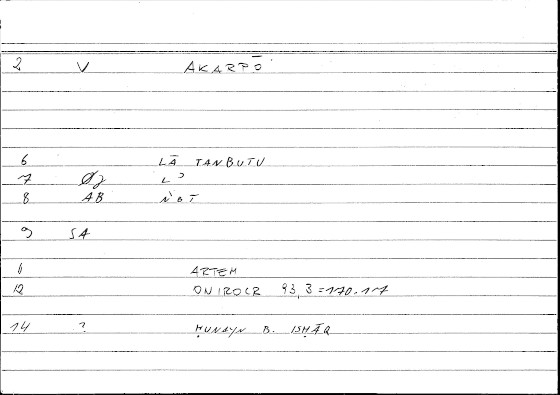 2 V AKARPŌ
6 LĀ TANBUTU
7 Øj L ʾ
8 AB ṄBT
9 SA
6 ARTEM
12 ONIROCR 93,3=170.17
14 ? ḤUNAYN B. ISḤĀQ